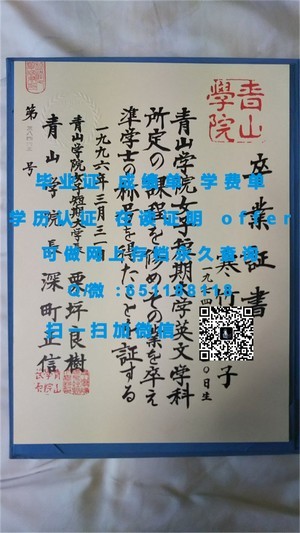 青山
學院
卒業証書
寒竹
子
一九
四
〇日生
青山学院女子短期大学英文学科
所定の課程を修めその業を卒え
準学士の称号を得たことを証する
一九九六年三月三一日
青山学院女子短期大学長
栗坪良樹
青山学院長
深町正信
第
号
毕业证 成绩单 学费单
学历认证 在读证明 offer
可做网上存档永久查询
Q/微:653188118
扫一扫加微信